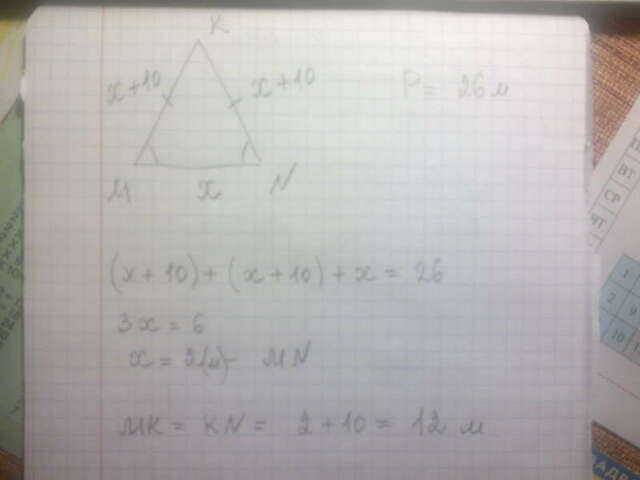 K
x+10 x+10 P = 26 м
M x N
(x + 10) + (x + 10) + x = 26
3x = 6
x = 2(м) - MN
MK = KN = 2 + 10 = 12 м
ВТ
СР
ЧТ
1
2 9
10 1